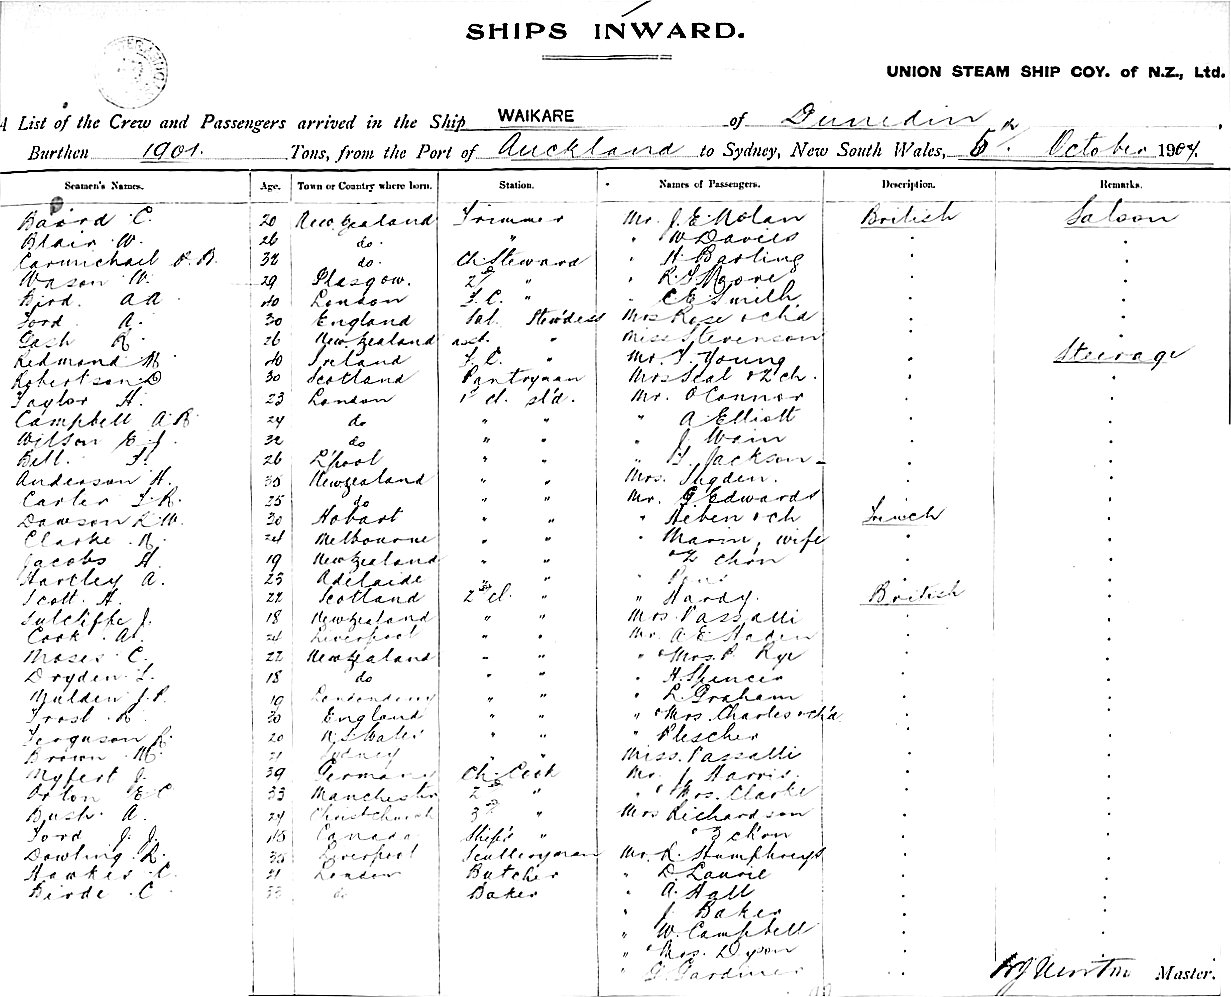 SHIPS INWARD.
UNION STEAM SHIP COY. of N.Z., Ltd.
A List of the Crew and Passengers arrived in the Ship WAIKARE of Dunedin.
Burthen 1901. Tons, from the Port of Auckland to Sydney, New South Wales, 5th October 1904.
Seamen's Names. Age. Town or Country where born. Station. Names of Passengers. Description. Remarks.
Baird C. 20 New Zealand Trimmer Mr. J. E. Nolan British Saloon
Blair W. 26 do. " " W Davies
Carmichael 32 do. Ch Steward " H Barling
Wason W. 29 Glasgow. 2d " " R. S Moore
Bird. AA 40 London F.C. " " C E Smith
Ford A. 30 England Sal. Stewdess Mrs Rose & ch'd
Gash R. 26 New Zealand asst. " Miss Stevenson
Redmond M 40 Ireland F.C. " Mr. Young Steerage
Robertson D 30 Scotland Pantryman Mrs Seal & 2 ch.
Taylor H. 23 London 1st cl. st'd. Mr. O'Connor
Campbell A B 24 do " " " A Elliott
Wilson E. J. 32 do " " " J Wain
Bell. F. 26 L'pool " " " Jackson
Anderson H. 35 New Zealand " " Mrs. Sugden.
Carter F. R. 25 do " " Mr. G Edwards
Dawson R W. 30 Hobart " " " & ch French
Clarke R. 24 Melbourne " " " Marin, wife
Jacobs H. 19 New Zealand " " & 2 ch'on
Hartley A. 23 Adelaide " "
Scott. H. 22 Scotland 2nd cl. " " Hardy. British
Sutcliffe J. 18 New Zealand " " Mrs. Passalli
Cook A. 24 Liverpool " " Mr. A E Haden
Moses C. 22 New Zealand " " " & Mrs. P. Rye
Dryden 18 do " " " H Spencer
Mulden J. P. 19 Londonderry " " " L. Graham
Frost R. 30 England " " " & Mrs. Charles & ch'd
Ferguson R. 20 N. S Wales " " " Plescher
Brown M. 21 Sydney " " Miss. Passalli
Nyfert J. 39 Germany Ch. Cook Mr. J Harris.
Orton E C 33 Manchester 2d " " & Mrs. Clarke
Bush A. 24 Christchurch 3rd " Mrs Richardson
Ford J. J. Canada Ship's " & 3 ch'on
Dowling R. 35 Liverpool Sculleryman Mr. R. Humphreys
Hawker C. 21 London Butcher " D Laurie
Birde C 33 do Baker " A. Hall
" J. Baker
" W. Campbell
" & Mrs. Dyson
" G Gardiner Newton Master.